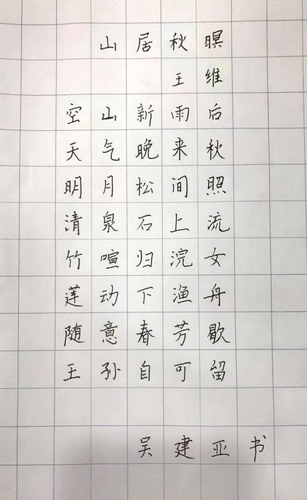 山居秋暝
王维
空山新雨后
天气晚来秋
明月松间照
清泉石上流
竹喧归浣女
莲动下渔舟
随意春芳歇
王孙自可留
吴建亚书